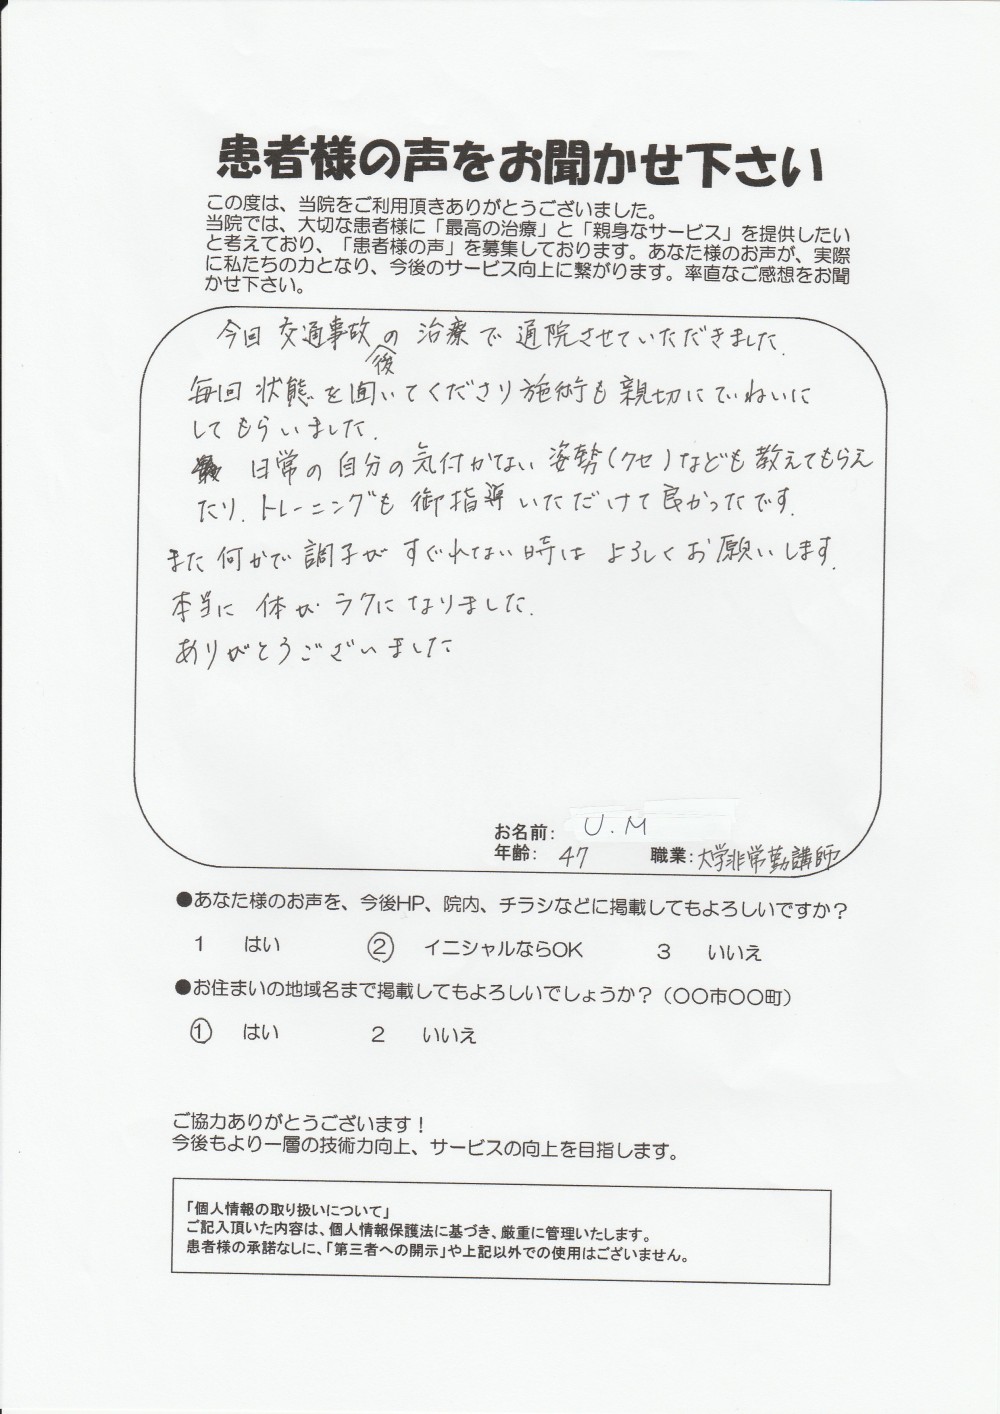 患者様の声をお聞かせ下さい
この度は、当院をご利用頂きありがとうございました。
当院では、大切な患者様に「最高の治療」と「親身なサービス」を提供したい
と考えており、「患者様の声」を募集しております。あなた様のお声が、実際
に私たちの力となり、今後のサービス向上に繋がります。率直なご感想をお聞
かせ下さい。
今回 交通事故後の 治療で 通院させていただきました.
毎回 状態を聞いてくださり施術も親切にていねいに
してもらいました.
日常の自分の気付かない姿勢(クセ)なども教えてもらえ
たり、トレーニングも御指導いただけて良かったです.
また何かで調子がすぐれない時はよろしくお願いします.
本当に 体が ラクになりました.
ありがとうございました
お名前: U.M
年齢: 47 職業:大学非常勤講師
●あなた様のお声を、今後HP、院内、チラシなどに掲載してもよろしいですか?
1 はい ② イニシャルならOK 3 いいえ
●お住まいの地域名まで掲載してもよろしいでしょうか?(〇〇市〇〇町)
① はい 2 いいえ
ご協力ありがとうございます!
今後もより一層の技術力向上、サービスの向上を目指します。
「個人情報の取り扱いについて」
ご記入頂いた内容は、個人情報保護法に基づき、厳重に管理いたします。
患者様の承諾なしに、「第三者への開示」や上記以外での使用はございません。